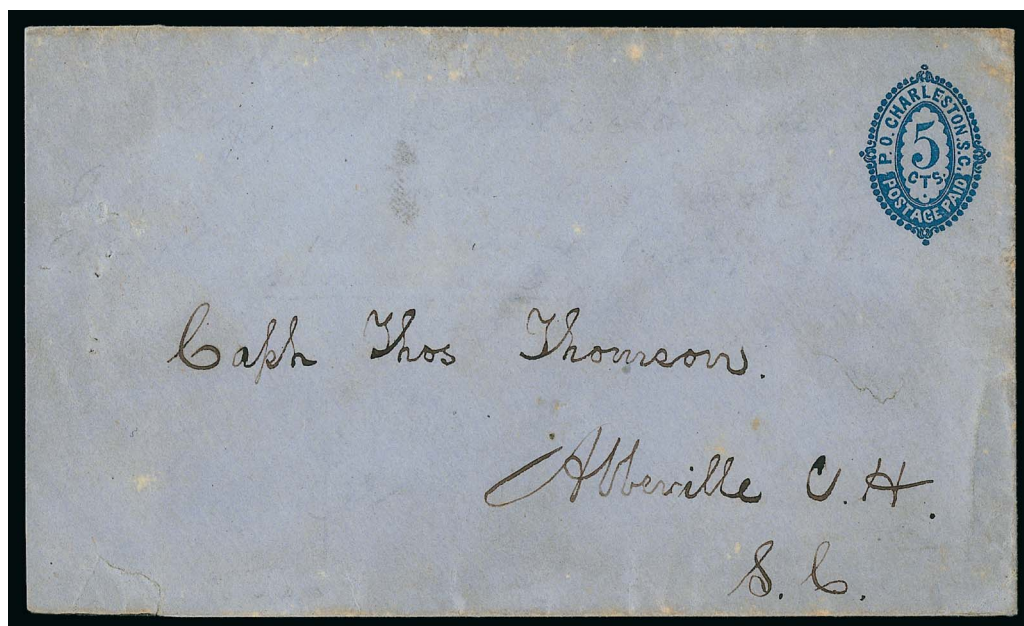 P. O. CHARLESTON. S. C.
5
CTS.
POSTAGE PAID
Capt Thos Thomson.
Abbeville C. H.
S. C.